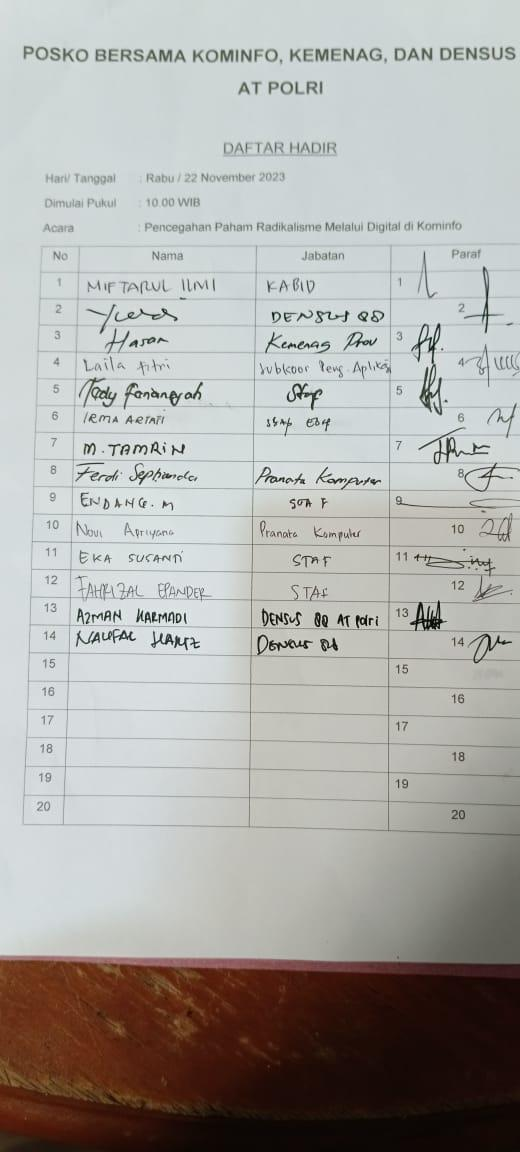 POSKO BERSAMA KOMINFO, KEMENAG, DAN DENSUS
AT POLRI
DAFTAR HADIR
Hari/ Tanggal : Rabu / 22 November 2023
Dimulai Pukul : 10.00 WIB
Acara : Pencegahan Paham Radikalisme Melalui Digital di Kominfo
No Nama Jabatan Paraf
1 MIFTARUL ILMI KABID 1
2 DENSUS 88 2
3 Hasan Kemenag Prov 3
4 Laila Fitri Subkoor Peng. Aplikasi 4
5 Tedy Staf 5
6 IRMA 6
7 M. TAMRIN 7
8 Ferdi Pranata Komputer 8
9 ENDANG. M 9
10 Novi Apriyana Pranata Komputer 10
11 EKA SUSANTI STAF 11
12 FAHRIZAL EPANDER STAF 12
13 AZMAN HARMADI DENSUS 88 AT Polri 13
14 NAUFAL DENSUS 88 14
15 15
16 16
17 17
18 18
19 19
20 20